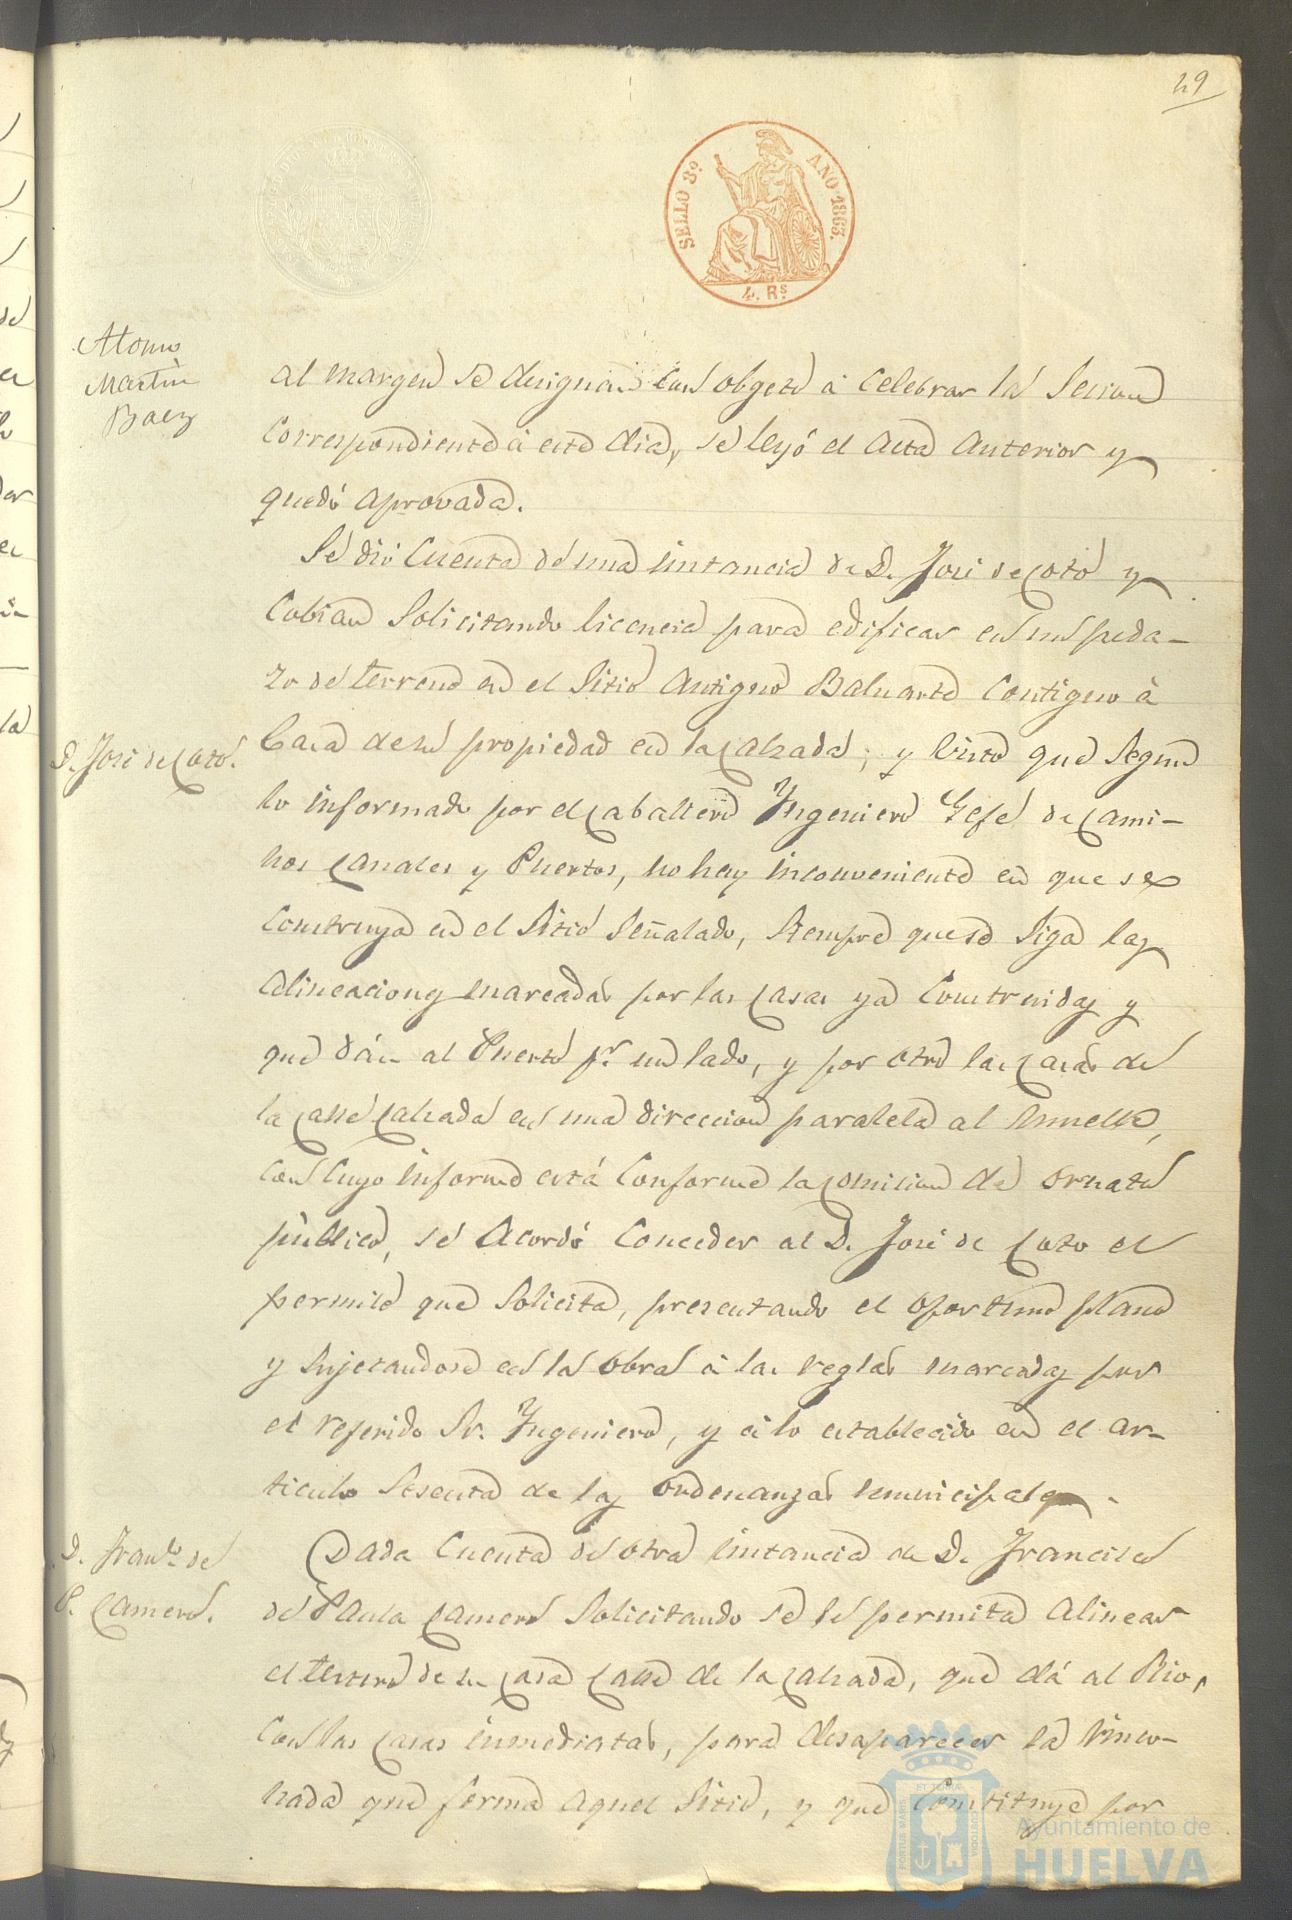 49
SELLO 3º AÑO 1863.
4. Rs
Alonso
Martin
Baez
al margen se designan con obgeto á celebrar la Sesion
correspondiente á este dia, se leyó el acta anterior y
quedó aprovada.
Se dió cuenta de una instancia de D. José de Coto y
Cobian solicitando licencia para edificar en un peda-
zo de terreno en el sitio antiguo Baluarte contiguo á
D. José de Coto.
Casa de su propiedad en la Calzada; y visto que segun
lo informado por el Caballero Ingeniero Gefe de Cami-
nos Canales y Puertos, no hay inconveniente en que se
construya en el sitio señalado, siempre que se siga las
alineaciones marcadas por las casas ya construidas y
que dán al Puerto pr. un lado, y por otro las casas de
la calle Calzada en una direccion paralela al muelle,
con cuyo informe está conforme la comision de ornato
público, se acordó conceder al D. José de Coto el
permiso que solicita, presentando el oportuno plano
y sujetandose en la obra á las reglas marcadas por
el referido Sr. Ingeniero, y á lo establecido en el ar-
ticulo sesenta de las ordenanzas municipales.
D. Franco. de
P. Camero.
Dada cuenta de otra instancia de D. Francisco
de Paula Camero solicitando se le permita alinear
el testero de su casa calle de la Calzada, que dá al Rio,
con las casas inmediatas, para desaparecer la rinco-
nada que forma aquel sitio, y que constituye por
PORTUS MARIS ET TERRAE CUSTODIA
Ayuntamiento de
HUELVA